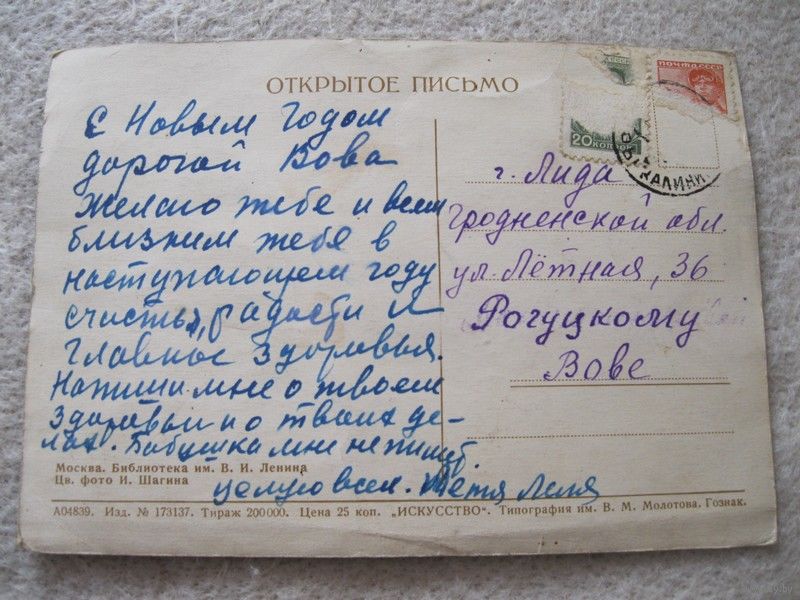 ОТКРЫТОЕ ПИСЬМО
С Новым Годом
дорогой Вова
Желаю тебе и всем
близким тебе в
наступающем году
счастья, радости и
главное здоровья.
Напиши мне о твоем
здоровьи и о твоих де-
лах. Бабушка мне не пишет
целую всех. Тётя Леля
ПОЧТА СССР
20 КОПЕЕК
КАЛИНИН
г. Лида
Гродненской обл.
ул. Лётная, 36
Рогуцкому
Вове
Москва. Библиотека им. В. И. Ленина
Цв. фото И. Шагина
А04839. Изд. № 173137. Тираж 200000. Цена 25 коп. „ИСКУССТВО". Типография им. В. М. Молотова. Гознак.